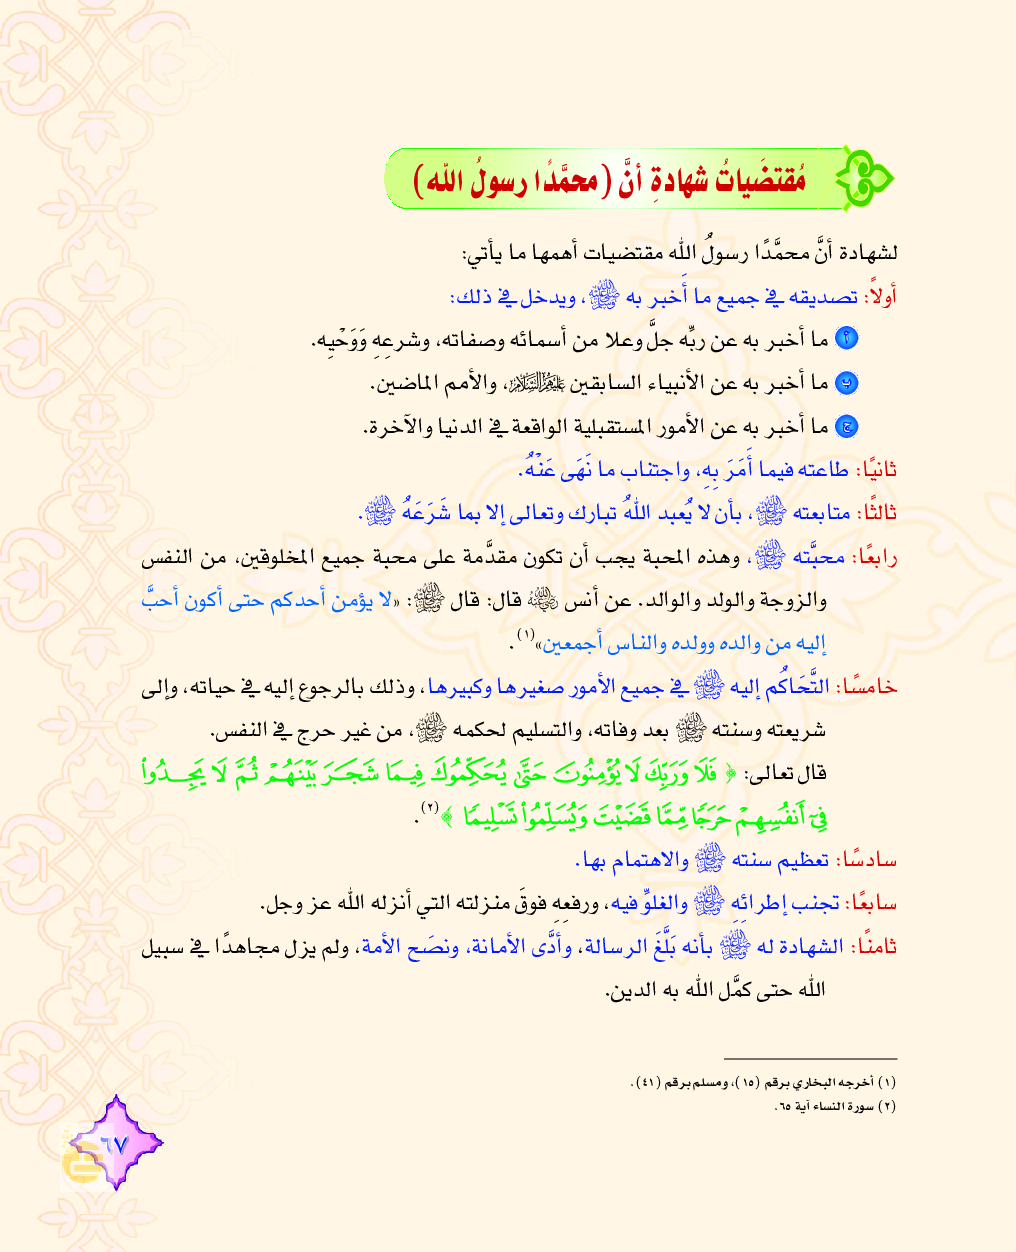 مُقتضَياتُ شهادةِ أنَّ (محمَّدًا رسولُ الله)
لشهادة أنَّ محمَّدًا رسولُ الله مقتضيات أهمها ما يأتي:
أولاً: تصديقه في جميع ما أَخبر به ﷺ، ويدخل في ذلك:
أ ما أخبر به عن ربِّه جلَّ وعلا من أسمائه وصفاته، وشرعِهِ وَوَحْيِه.
ب ما أخبر به عن الأنبياء السابقين عليهم السلام، والأمم الماضين.
ج ما أخبر به عن الأمور المستقبلية الواقعة في الدنيا والآخرة.
ثانيًا: طاعته فيما أَمَرَ بِهِ، واجتناب ما نَهَى عَنْهُ.
ثالثًا: متابعته ﷺ، بأن لا يُعبد اللهُ تبارك وتعالى إلا بما شَرَعَهُ ﷺ.
رابعًا: محبَّته ﷺ، وهذه المحبة يجب أن تكون مقدَّمة على محبة جميع المخلوقين، من النفس
والزوجة والولد والوالد. عن أنس رضي الله عنه قال: قال ﷺ: «لا يؤمن أحدكم حتى أكون أحبَّ
إليه من والده وولده والناس أجمعين»(١).
خامسًا: التَّحَاكُم إليه ﷺ في جميع الأمور صغيرها وكبيرها، وذلك بالرجوع إليه في حياته، وإلى
شريعته وسنته ﷺ بعد وفاته، والتسليم لحكمه ﷺ، من غير حرج في النفس.
قال تعالى: ﴿ فَلَا وَرَبِّكَ لَا يُؤْمِنُونَ حَتَّىٰ يُحَكِّمُوكَ فِيمَا شَجَرَ بَيْنَهُمْ ثُمَّ لَا يَجِدُوا۟
فِىٓ أَنفُسِهِمْ حَرَجًا مِّمَّا قَضَيْتَ وَيُسَلِّمُوا۟ تَسْلِيمًا ﴾(٢).
سادسًا: تعظيم سنته ﷺ والاهتمام بها.
سابعًا: تجنب إطرائِهِ ﷺ والغلوِّ فيه، ورفعِهِ فوقَ منزلته التي أنزله الله عز وجل.
ثامنًا: الشهادة له ﷺ بأنه بَلَّغَ الرسالة، وأدَّى الأمانة، ونصَح الأمة، ولم يزل مجاهدًا في سبيل
الله حتى كمَّل الله به الدين.
(١) أخرجه البخاري برقم (١٥)، ومسلم برقم (٤١).
(٢) سورة النساء آية ٦٥.
٦٧